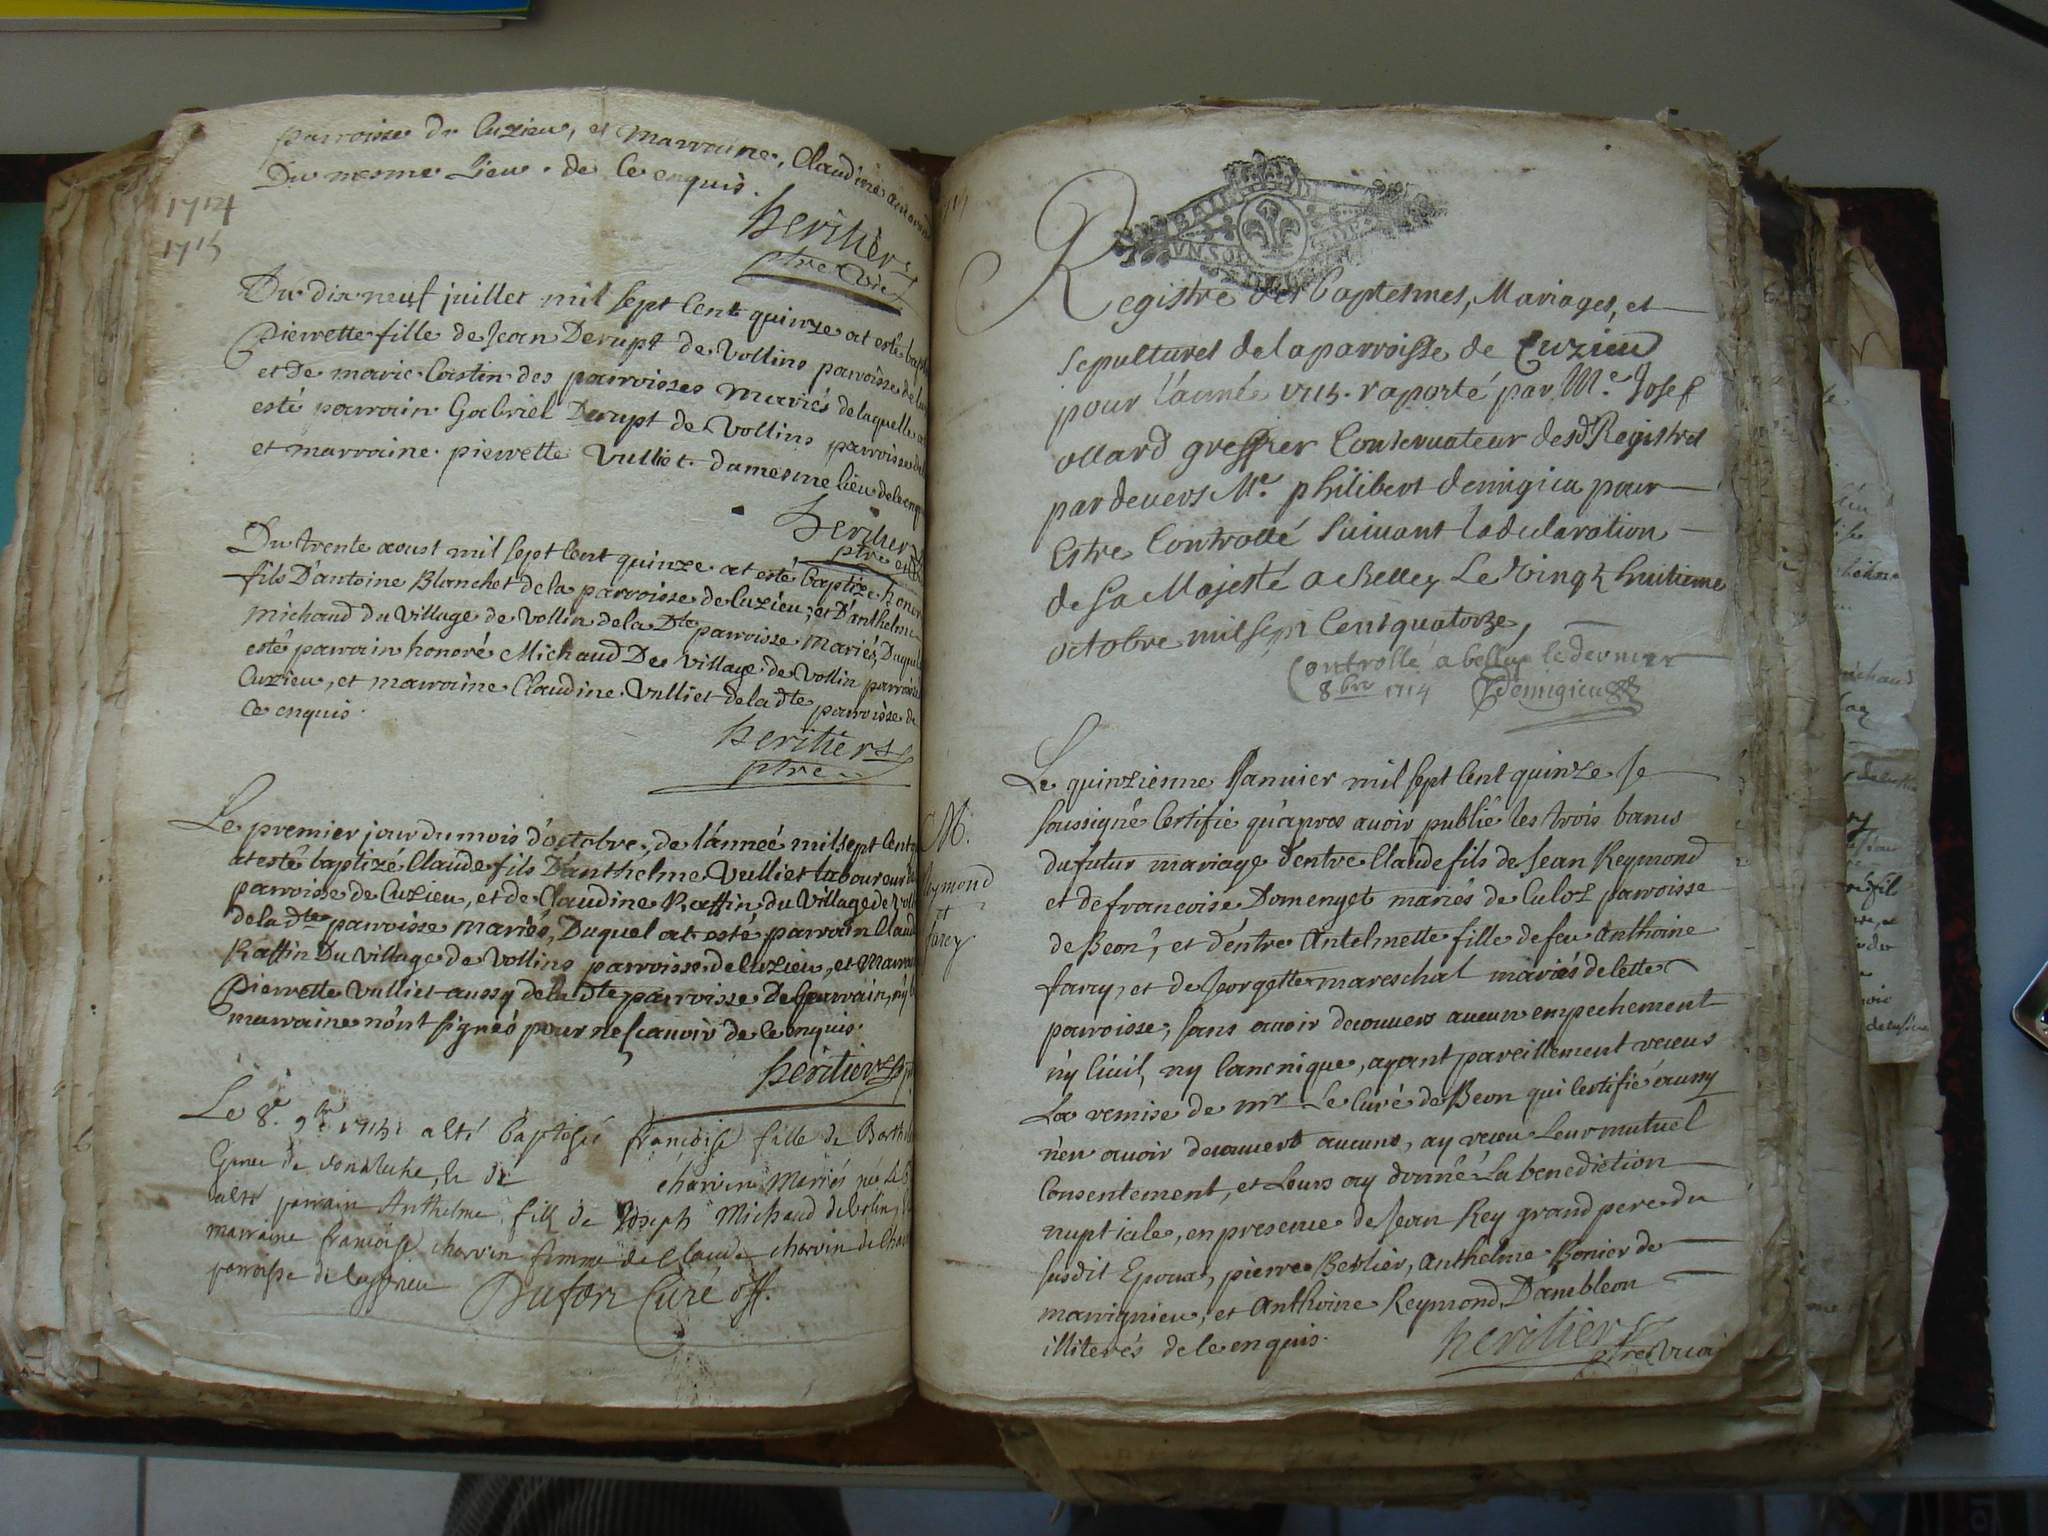 parroisse de Cuzieu, et marraine, Claudine
Du mesme Lieu. de ce enquis.
heritier
ptre
1714
1715
Du dix neuf juillet mil sept Cent quinze at esté
Pierrette fille de Jean Derupt de Vollins parroisse de
et De marie Costin des parroisses mariés de laquelle
esté parrain Gabriel Derupt de Vollins parroisse
et marraine pierrette Vulliet du mesme lieu de ce
heritier
ptre
Du trente aoust mil sept Cent quinze at esté baptizé
fils D'antoine Blanchet de la parroisse de Cuzieu, et D'anthelme
Michaud du Village de Vollin de la Dte parroisse Mariés, Duquel
esté parrain honoré Michaud Des village de Vollin parroisse
Cuzieu, et marraine Claudine Vulliet de la dte parroisse de
Ce enquis.
heritier
ptre
Le premier jour du mois d'octobre, de l'année mil sept Cent
at esté baptizé Claude fils D'anthelme Vulliet laboureur
parroisse de Cuzieu, et de Claudine Raffin du Village de
de la dte parroisse mariés, Duquel at esté parrain
Raffin Du village de Vollins parroisse de Cuzieu, et
Pierrette Vulliet aussy de la dte parroisse Le parrain, ny
marraine n'ont signés pour ne scavoir de ce enquis.
heritier
Le 8e 9bre 1715 a été baptisée francoise fille de
de et de charvin Mariés
parrain Anthelme fils de Joseph Michaud de
marraine francoise charvin femme de Claude charvin de
parroisse de
Dufour Curé off.
Registre des Baptesmes, Mariages, et
sepultures de la parroisse de Cuzieu
pour l'année 1715. raporté par Me Josef
ollard greffier Conservateur desd Registres
par devers Me philibert demigieu pour
Estre Controllé Suivant la declaration
de Sa Majesté a Belley Le Vingt huitieme
octobre mil sept Cent quatorze,
Controllé a belley le dernier
8bre 1714 Demigieu
M.
Reymond
et
farcy
Le quinzienme Janvier mil sept Cent quinze Je
soussigné Certifie qu'apres avoir publié les trois bans
du futur mariage d'entre Claude fils de Jean Reymond
et de francoise Domenget mariés de Culoz parroisse
de Beon, et d'entre Antelmette fille de feu Anthoine
farcy, et de Jeorgette mareschal mariés de cette
parroisse, sans avoir decouvers aucun empechement
ny Civil, ny Canonique, ayant pareillement receus
La remise de mr Le Curé de Beon qui Certifie
n'en avoir decouvert aucuns, ay receu Leur mutuel
Consentement, et Leurs ay donné La benediction
nuptiale, en presence de Jean Rey grand pere du
susdit Epoux, pierre Berlier, Anthelme Bonier de
marrignieu, et Anthoine Reymond, D'ambleon
illiterés de ce enquis.
heritier
ptre